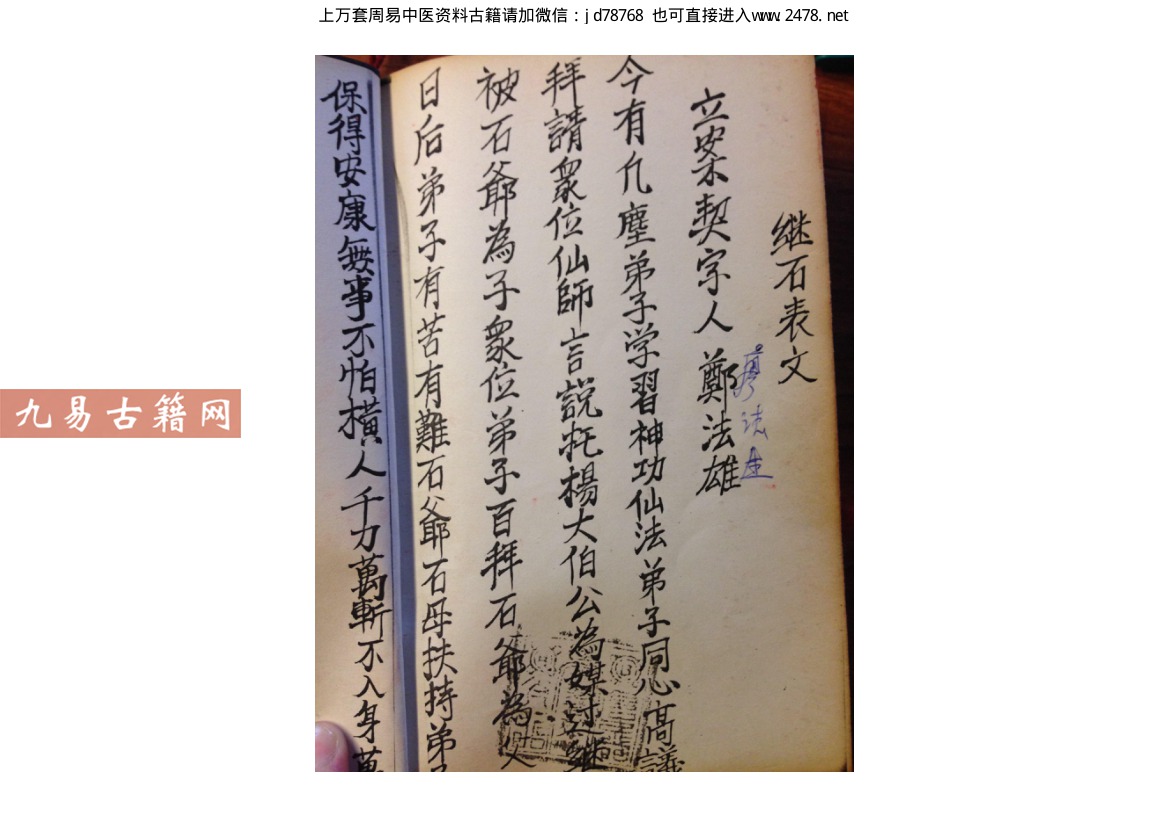 上万套周易中医资料古籍请加微信：jd78768 也可直接进入www.2478.net
继石表文
立案契字人 鄭法雄
法
今有凢塵弟子学習神功仙法弟子同心高議
拜請衆位仙師言説托楊大伯公為媒过继
被石爺為子衆位弟子百拜石爺為父
日后弟子有苦有難石爺石母扶持弟子
保得安康無事不怕橫人千刀萬斬不入身萬
九易古籍网